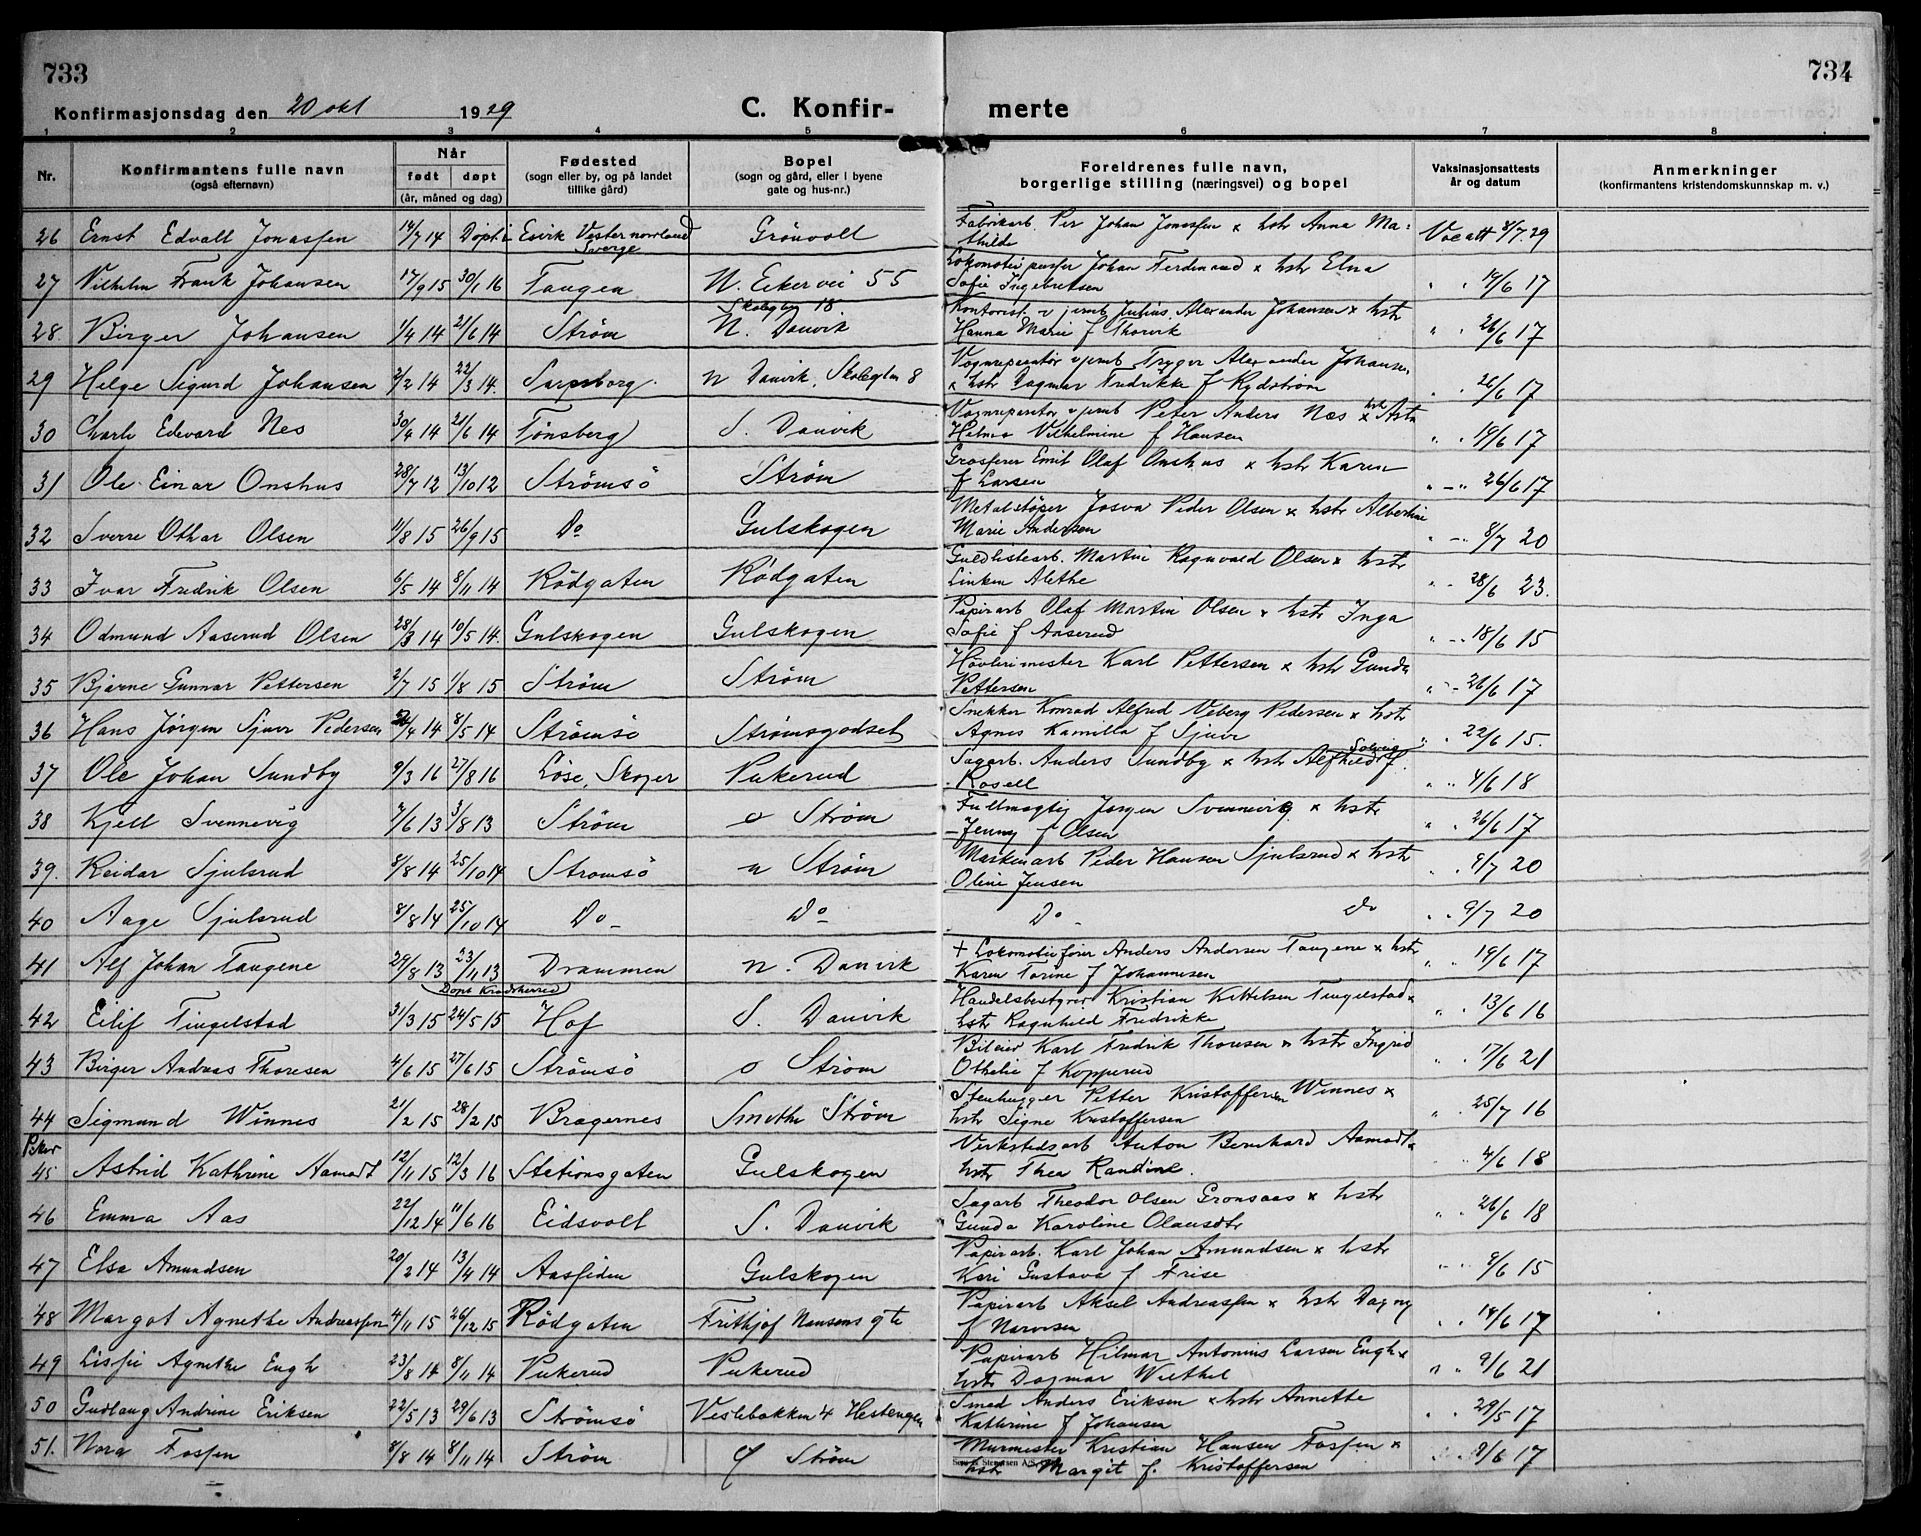 733
734
Konfirmasjonsdag den 20 okt 1929
C. Konfir-
merte
1 2 3 4 5 6 7 8
Nr.
Konfirmantens fulle navn
(også efternavn)
Når
født døpt
(år, måned og dag)
Fødested
(sogn eller by, og på landet
tillike gård)
Bopel
(sogn og gård, eller i byene
gate og hus-nr.)
Foreldrenes fulle navn,
borgerlige stilling (næringsvei) og bopel
Vaksinasjonsattests
år og datum
Anmerkninger
(konfirmantens kristendomskunnskap m. v.)
26 Ernst Edvall Jonassen 14/7 14 Døpt i Esvik Vesternorrland Sverge Grönvoll Fabrikarb. Per Johan Jonassen x hstr Anna Ma-
thilde Vacatt 8/7.29
27 Vilhelm Frank Johansen 17/9 15 30/1 16 Tangen N. Eikervei 55 Lokomotivpusser Johan Ferdinand x hstr Elna
Sofie Ingebretsen " " 19/6 17
28. Birger Johansen 1/4 14 21/6 14 Strøm Skoleglen 18 N. Danvik Kontorist v jernb Julius Alexander Johansen x hstr
Hanna Marie f Thorvik " " 26/6 17
29 Helge Sigurd Johansen 2/2 14 22/3 14. Sarpsborg. N Danvik, Skoleglen 8 Vognreparatør v jernb Trygve Alexander Johansen
x hstr Dagmar Fredrikke f Rydström " 26/6 17
30 Charls Edevard Nes 30/4 14 21/6 14 Tönsberg S. Danvik Vognreparatør v jernb Peter Anders Næs x hstr Asta
Helma Vilhelmine f Hansen " " 19/6 17
31 Ole Einar Onshus 28/7 12 13/10 12 Strømsö Strøm Grosserer Emil Olaf Onshus x hstr Karen
f Larsen " - " 26/6 17
32 Sverre Othar Olsen 11/8 15 26/9 15 Do Gulskogen Metalstøper Josva Peder Olsen x hstr Albertine
Marie Andersen " - " 8/7 20
33 Ivar Fredrik Olsen 6/5 14 8/11 14 Rödgaten Rödgaten Guldlistearb. Martin Ragnvald Olsen x hstr
Linken Alethe " " 28/6 23.
34 Odmund Aaserud Olsen 28/3 14 10/5 14. Gulskogen Gulskogen Papirarb Olaf Martin Olsen x hstr Inga
Sofie f Aaserud " - " 18/6 15
35 Bjarne Gunnar Pettersen 2/7 15 1/8 15 Strøm Strøm Høvlerimester Karl Pettersen x hstr Gunda
Pettersen " - " 26/6 17
36 Hans Jørgen Sjuve Pedersen /4 14 8/5 14 Strømsö Strømsgodset Snekker Konrad Alfred Veberg Pedersen x hstr
Agnes Kamilla f Sjuve " " 22/6 15.
37 Ole Johan Sundby 9/3 16 27/8 16 Löse, Skoger Pukerud Sagarb. Anders Sundby x hstr Alfhild Solveig f.
Rosell " " 4/6 18
38 Kjell Svennevig 7/6 13 3/8 13 Strøm o Strøm Fullmægtig Jørgen Svennevig x hstr
Jenny f Olsen " " 26/6 17
39. Reidar Sjulsrud 8/8 14 25/10 14 Strømsö n Strøm Maskinarb Peder Hansen Sjulsrud x hstr
Oline Jensen " " 9/7 20
40 Aage Sjulsrud 8/8 14 25/10 14 Do - Do Do - do " " 9/7 20
41 Alf Johan Tangene 29/8 13 23/11 13 Drammen N. Danvik + Lokomotivfører Anders Andersen Tangene x hstr
Karen Torine f Johannesen " " 19/6 17
Døpt Krødsherred
42 Eilif Tingelstad 31/3 15 24/5 15 Hof S. Danvik Handelsbestyrer Kristian Kittelsen Tingelstad x
hstr Ragnhild Fredrikke " " 13/6 16
43 Birger Andreas Thoresen 4/6 15 27/6 15 Strømsö o Strøm Bileier Karl Fredrik Thoresen x hstr Ingrid
Othelie f Kopperud " " 17/6 21
44 Sigmund Winnes 21/2 15 28/2 15 Bragernes Smithe Strøm Stenhugger Petter Kristoffersen Winnes x
hstr Signe Kristoffersen " " 25/7 16
Piker
45 Astrid Kathrine Aamodt 12/11 15 12/3 16 Stationsgaten Gulskogen Verkstedsarb Anton Bernhard Aamodt x
hstr Thea Randine. " " 4/6 18
46 Emma Aas 22/12 14 11/6 16 Eidsvoll S. Danvik Sagarb Theodor Olsen Gronsaas x hstr
Gunda Karoline Olausdtr " " 26/6 18
47 Elsa Amundsen 20/2 14 13/4 14 Aassiden Gulskogen Papirarb. Karl Johan Amundsen x hstr
Kari Gustava f Frise " " 9/6 15
48 Margot Agnethe Andreassen 4/11 15 26/12 15 Rödgaten Frithjof Nansens gte Papirarb Aksel Andreassen x hstr Dagny
f Narvesen " " 19/6 17
49 Lissie Agnethe Engh 23/8 14 8/11 14 Pukerud Pukerud Papirarb Hilmar Antonius Larsen Engh x
hstr Dagmar Wethel " " 9/6 21
50 Gudlaug Andrine Eriksen 22/5 13 29/6 13 Strømsö Veslebakken 4 Hestengen Smed Anders Eriksen x hstr Annette
Kathrine f Johansen " " 29/5 17
51. Nora Fossen 8/8 14 8/11 14 Strøm Ø Strøm Murmester Kristian Hansen Fossen x
hstr Margit f. Kristoffersen " " 8/6 17